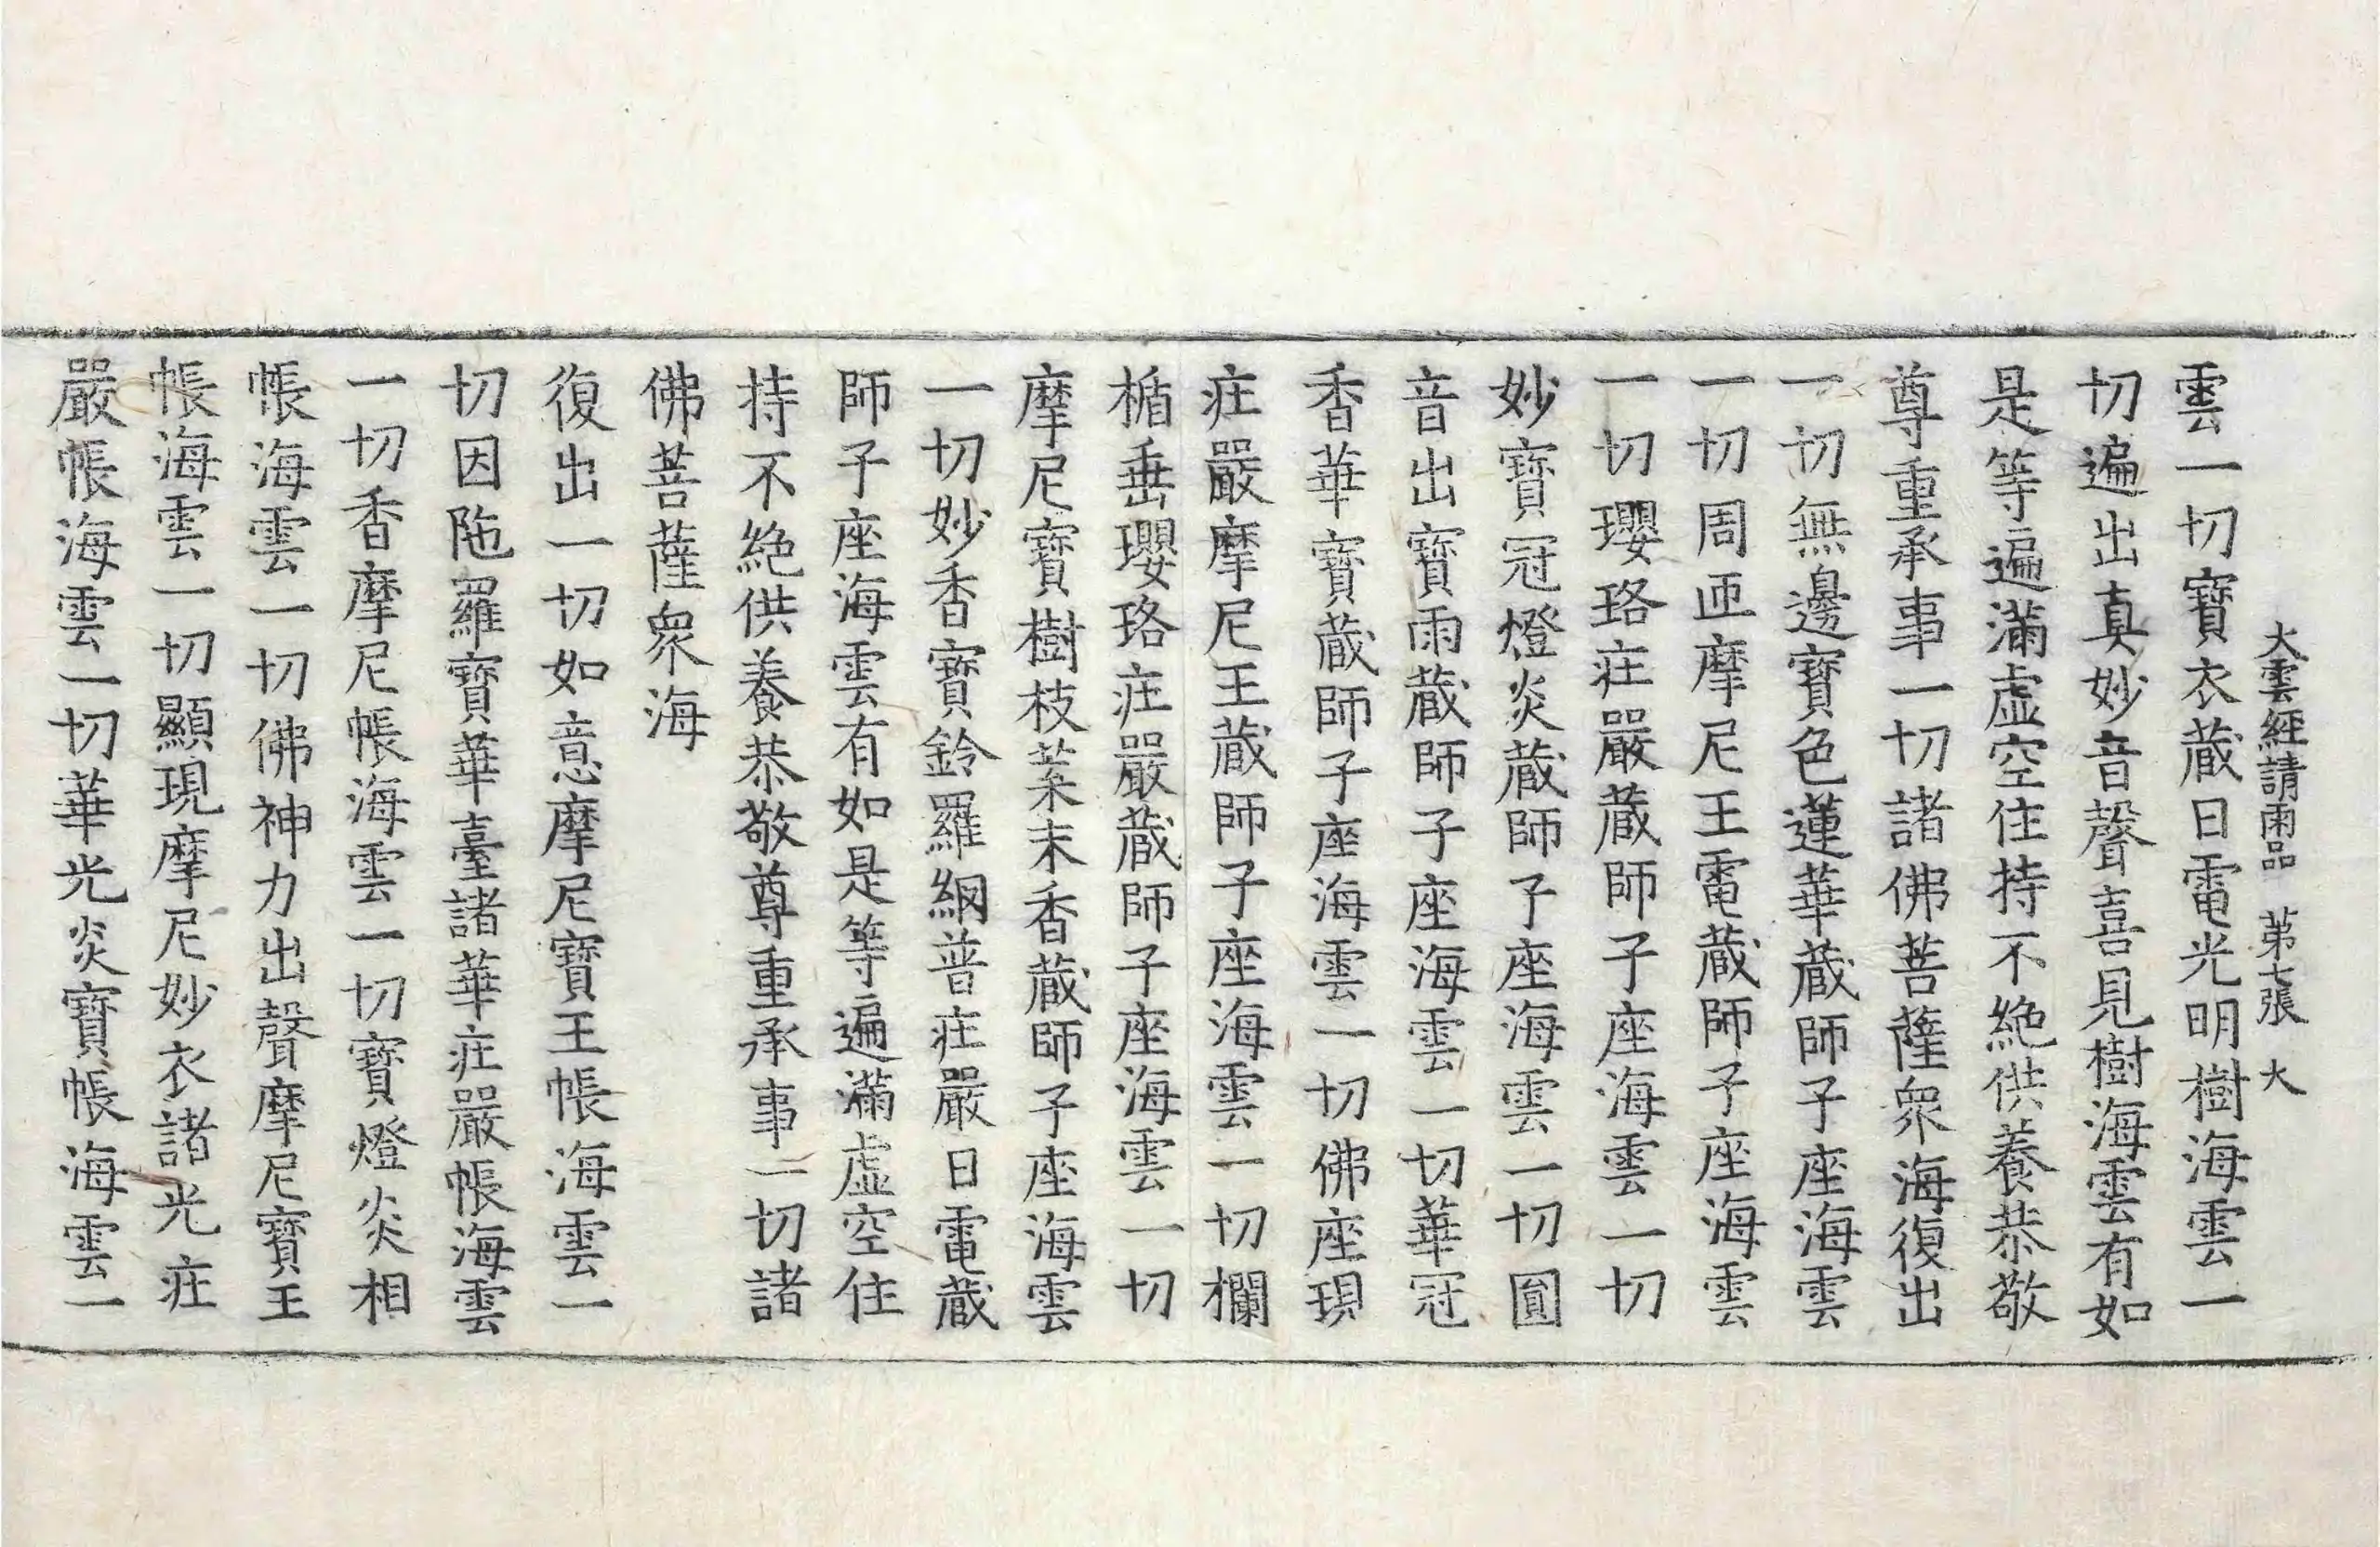 大雲經請雨品 苐七張 大
雲一切寳衣蔵日電光明樹海雲一
切遍出真妙音聲喜見樹海雲有如
是等遍滿虚空住持不絶供養恭敬
尊重承事一切諸佛菩薩衆海復出
一切無邊寳色蓮華蔵師子座海雲
一切周帀摩尼王電蔵師子座海雲
一切瓔珞庄嚴蔵師子座海雲一切
妙寳冠燈炎蔵師子座海雲一切圎
音出寳雨蔵師子座海雲一切華冠
香華寳蔵師子座海雲一切佛座現
庄嚴摩尼王蔵師子座海雲一切欄
楯垂瓔珞庄嚴蔵師子座海雲一切
摩尼寳樹枝葉末香蔵師子座海雲
一切妙香寳鈴羅網普庄嚴日電蔵
師子座海雲有如是等遍滿虚空住
持不絶供養恭敬尊重承事一切諸
佛菩薩衆海
復出一切如意摩尼寳王帳海雲一
切因陁羅寳華臺諸華庄嚴帳海雲
一切香摩尼帳海雲一切寳燈炎相
帳海雲一切佛神力出聲摩尼寳王
帳海雲一切顯現摩尼妙衣諸光庄
嚴帳海雲一切華光炎寳帳海雲一